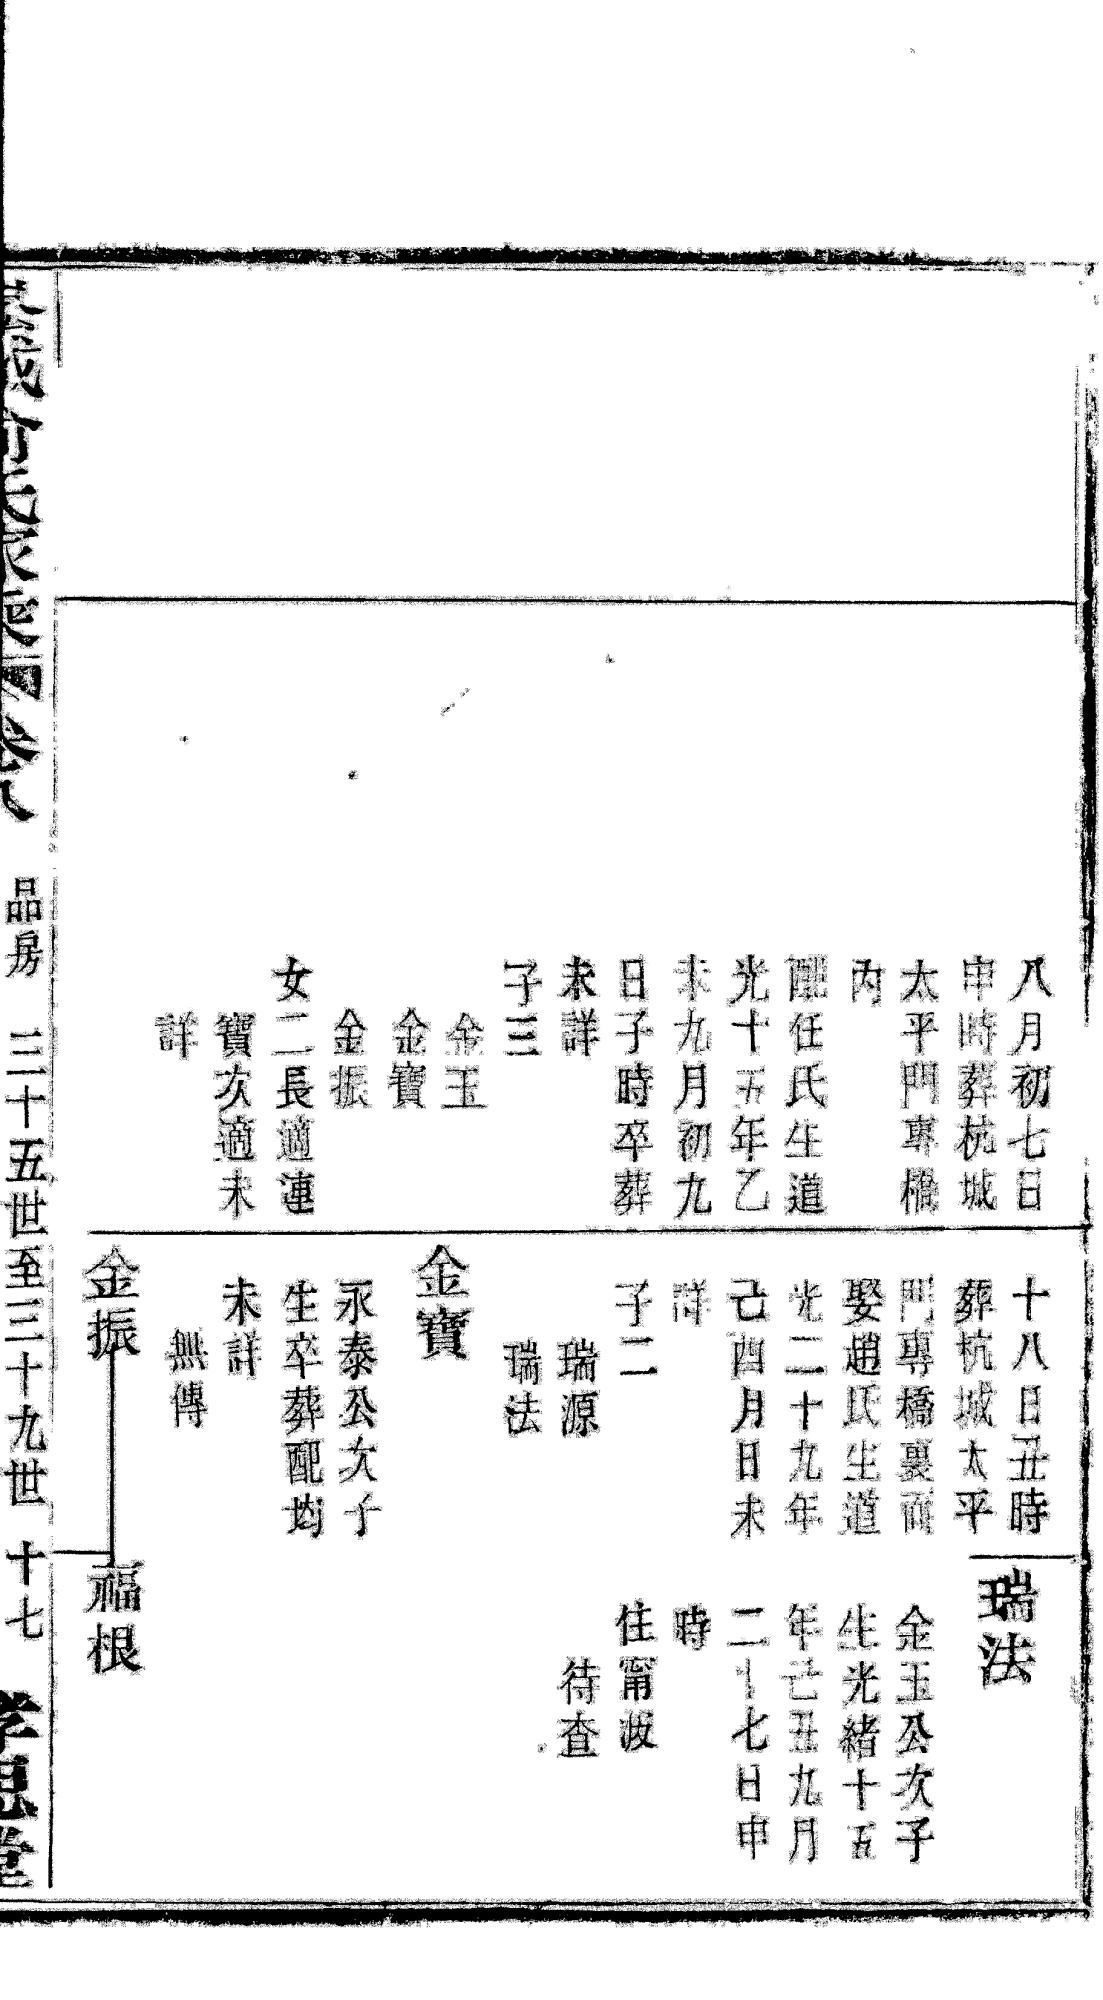 八月初七日
申時葬杭城
太平門專橋
內
配任氏生道
光十五年乙
未九月初九
日子時卒葬
未詳
子三
金玉
金寶
金振
女二長適連
寶次適未
詳
十八日丑時
葬杭城太平
門專橋裏面
娶趙氏生道
光二十九年
己酉月日未
詳
子二
瑞源
瑞法
金寶
永泰公次子
生卒葬配均
未詳
無傳
金振
瑞法
金玉公次子
生光緒十五
年己丑九月
二十七日申
時
住甯波
待查
福根
品房
二十五世至三十九世
十七
孝思堂